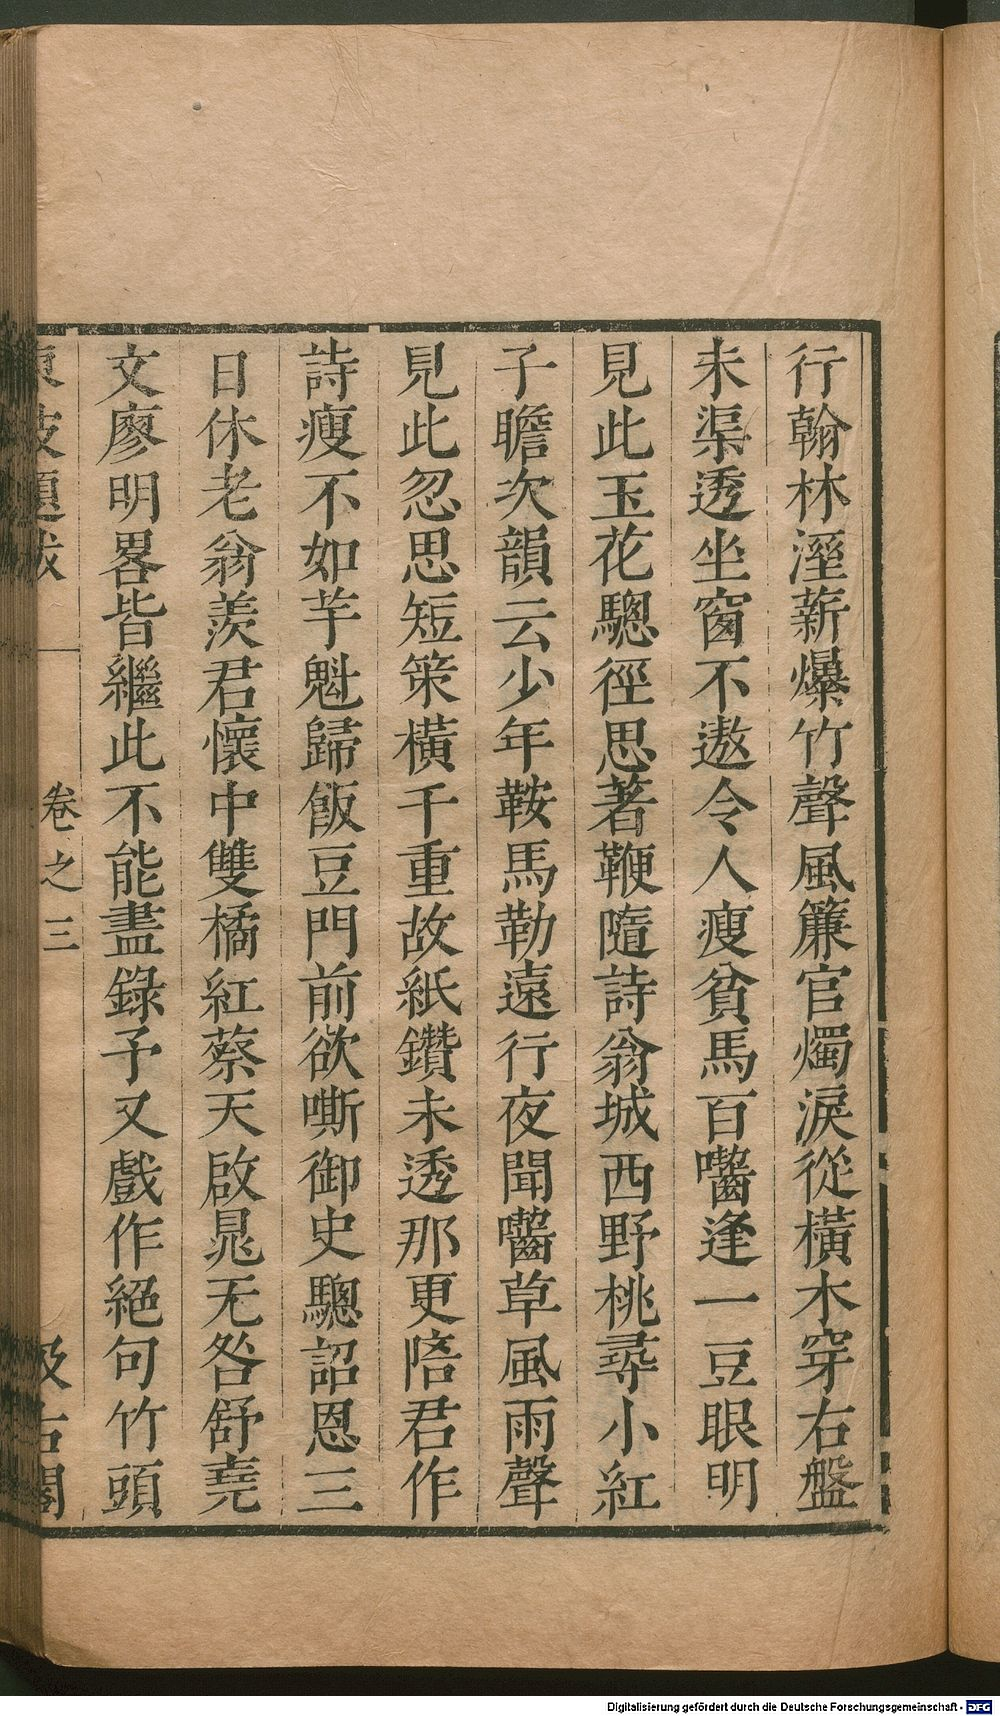 行翰林溼薪爆竹聲風簾官燭淚從橫木穿右盤
未渠透坐窗不遨令人瘦貧馬百𪗪逢一豆眼明
見此玉花驄徑思著鞭隨詩翁城西野桃尋小紅
子瞻次韻云少年鞍馬勒遠行夜聞𪗪草風雨聲
見此忽思短策橫千重故紙鑽未透那更陪君作
詩瘦不如芋魁歸飯豆門前欲嘶御史驄詔恩三
日休老翁羨君懷中雙橘紅蔡天啟晁无咎舒堯
文廖明畧皆繼此不能盡錄予又戲作絕句竹頭
東坡題跋
卷之三
汲古閣
Digitalisierung gefördert durch die Deutsche Forschungsgemeinschaft - DFG